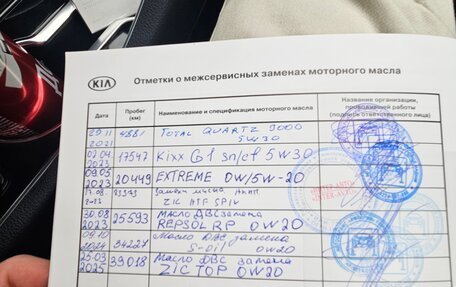 KIA
Отметки о межсервисных заменах моторного масла
Дата
Пробег
(км)
Наименование и спецификация моторного масла
Название организации,
проводившей работы
(подпись ответственного лица)
29.11
2021
4881
TOTAL QUARTZ 9000
5W30
07.04
2023
17547
Kixx G1 sn/cf 5w30
09.05
2023
20449
EXTREME 0W/5W-20
замена масла АКПП
ZIC ATF SP IV
30.08
2023
25593
Масло ДВС замена
REPSOL RP 0W20
09.10
2024
34227
Масло ДВС замена
S-OIL 0W20
25.03
2025
39018
Масло ДВС замена
ZIC TOP 0W20